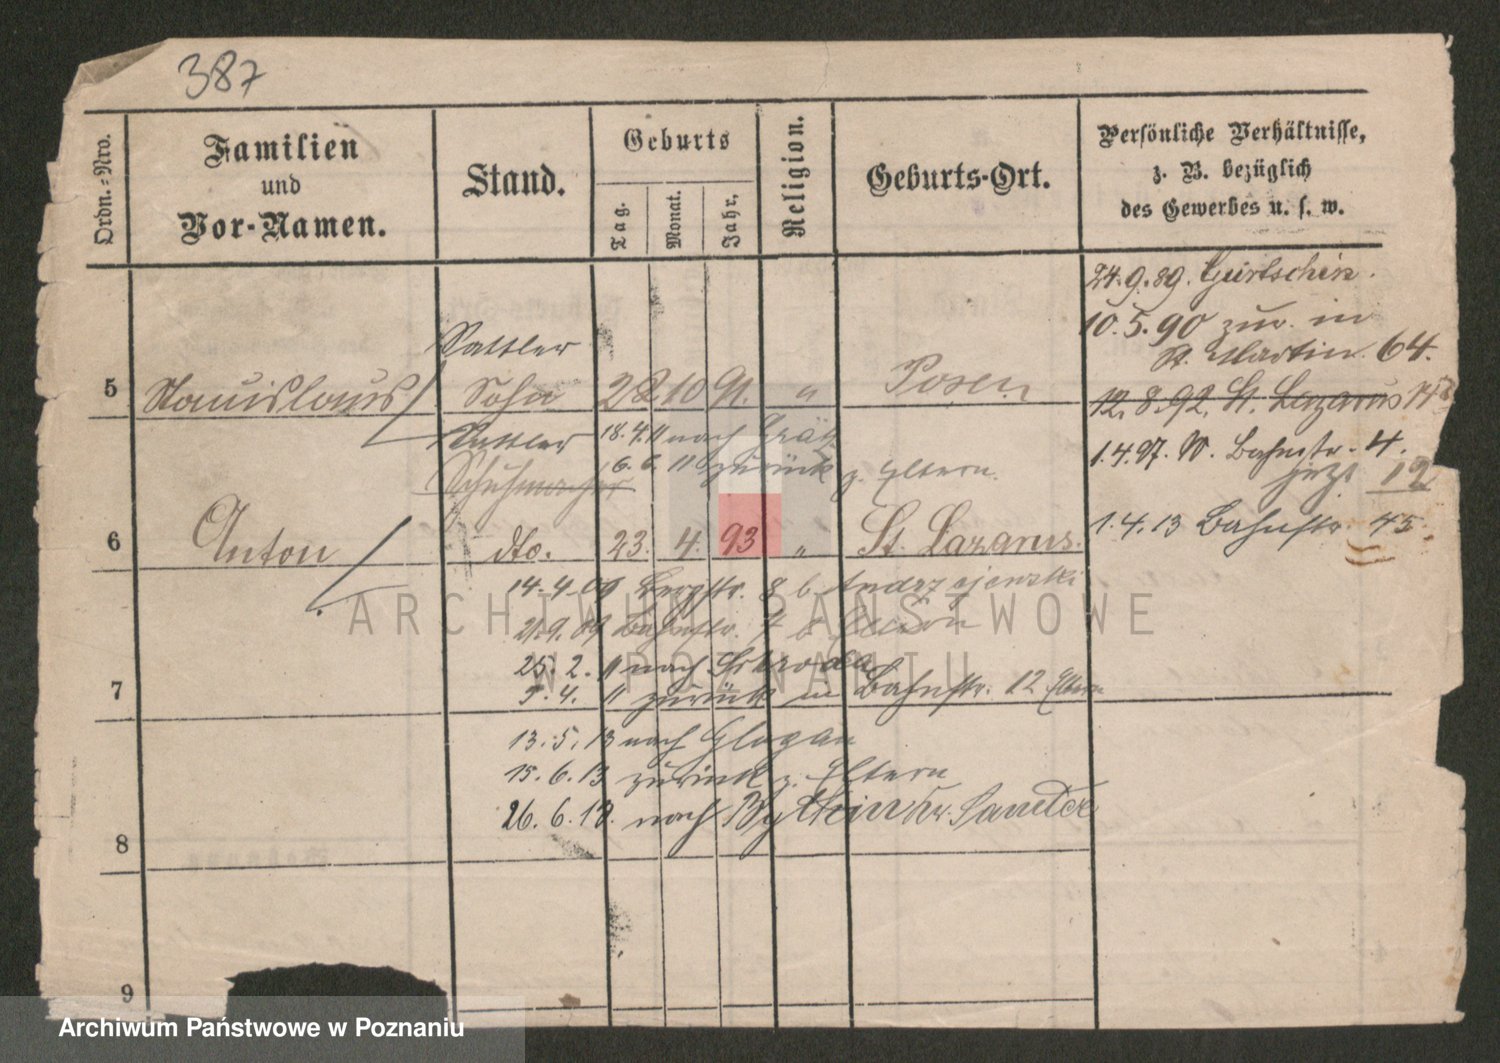 387
Ordn.-Nro.
Familien
und
Vor-Namen.
Stand.
Geburts
Tag.
Monat.
Jahr.
Religion.
Geburts-Ort.
Persönliche Verhältnisse,
z. B. bezüglich
des Gewerbes u. s. w.
24.9.89. Gurtschin.
10.5.90 zur. in
St. Martin 64.
Sattler
5 Stanislaus Sohn 28 10 91. " Posen
12.8.92. St. Lazarus
Sattler 18.4.11 nach Grätz
1.4.97. W. Bahnstr. 4.
Schuhmacher 6.6.11 zurück z. Eltern.
jetzt 12
1.4.13 Bahnstr. 45.
6 Anton dto. 23. 4. 93 " St. Lazarus.
14.4.09 Bergstr. 8 b. Andrzejewski
21.9.09 Bahnstr. 7 b. Eltern
25.2.11 nach Schroda
7
5.4.11 zurück in Bahnstr. 12 Eltern
13.5.13 nach Glogau
15.6.13 zurück z. Eltern
26.6.13. nach Samter
8
9
ARCHIWUM PAŃSTWOWE
W POZNANIU
Archiwum Państwowe w Poznaniu